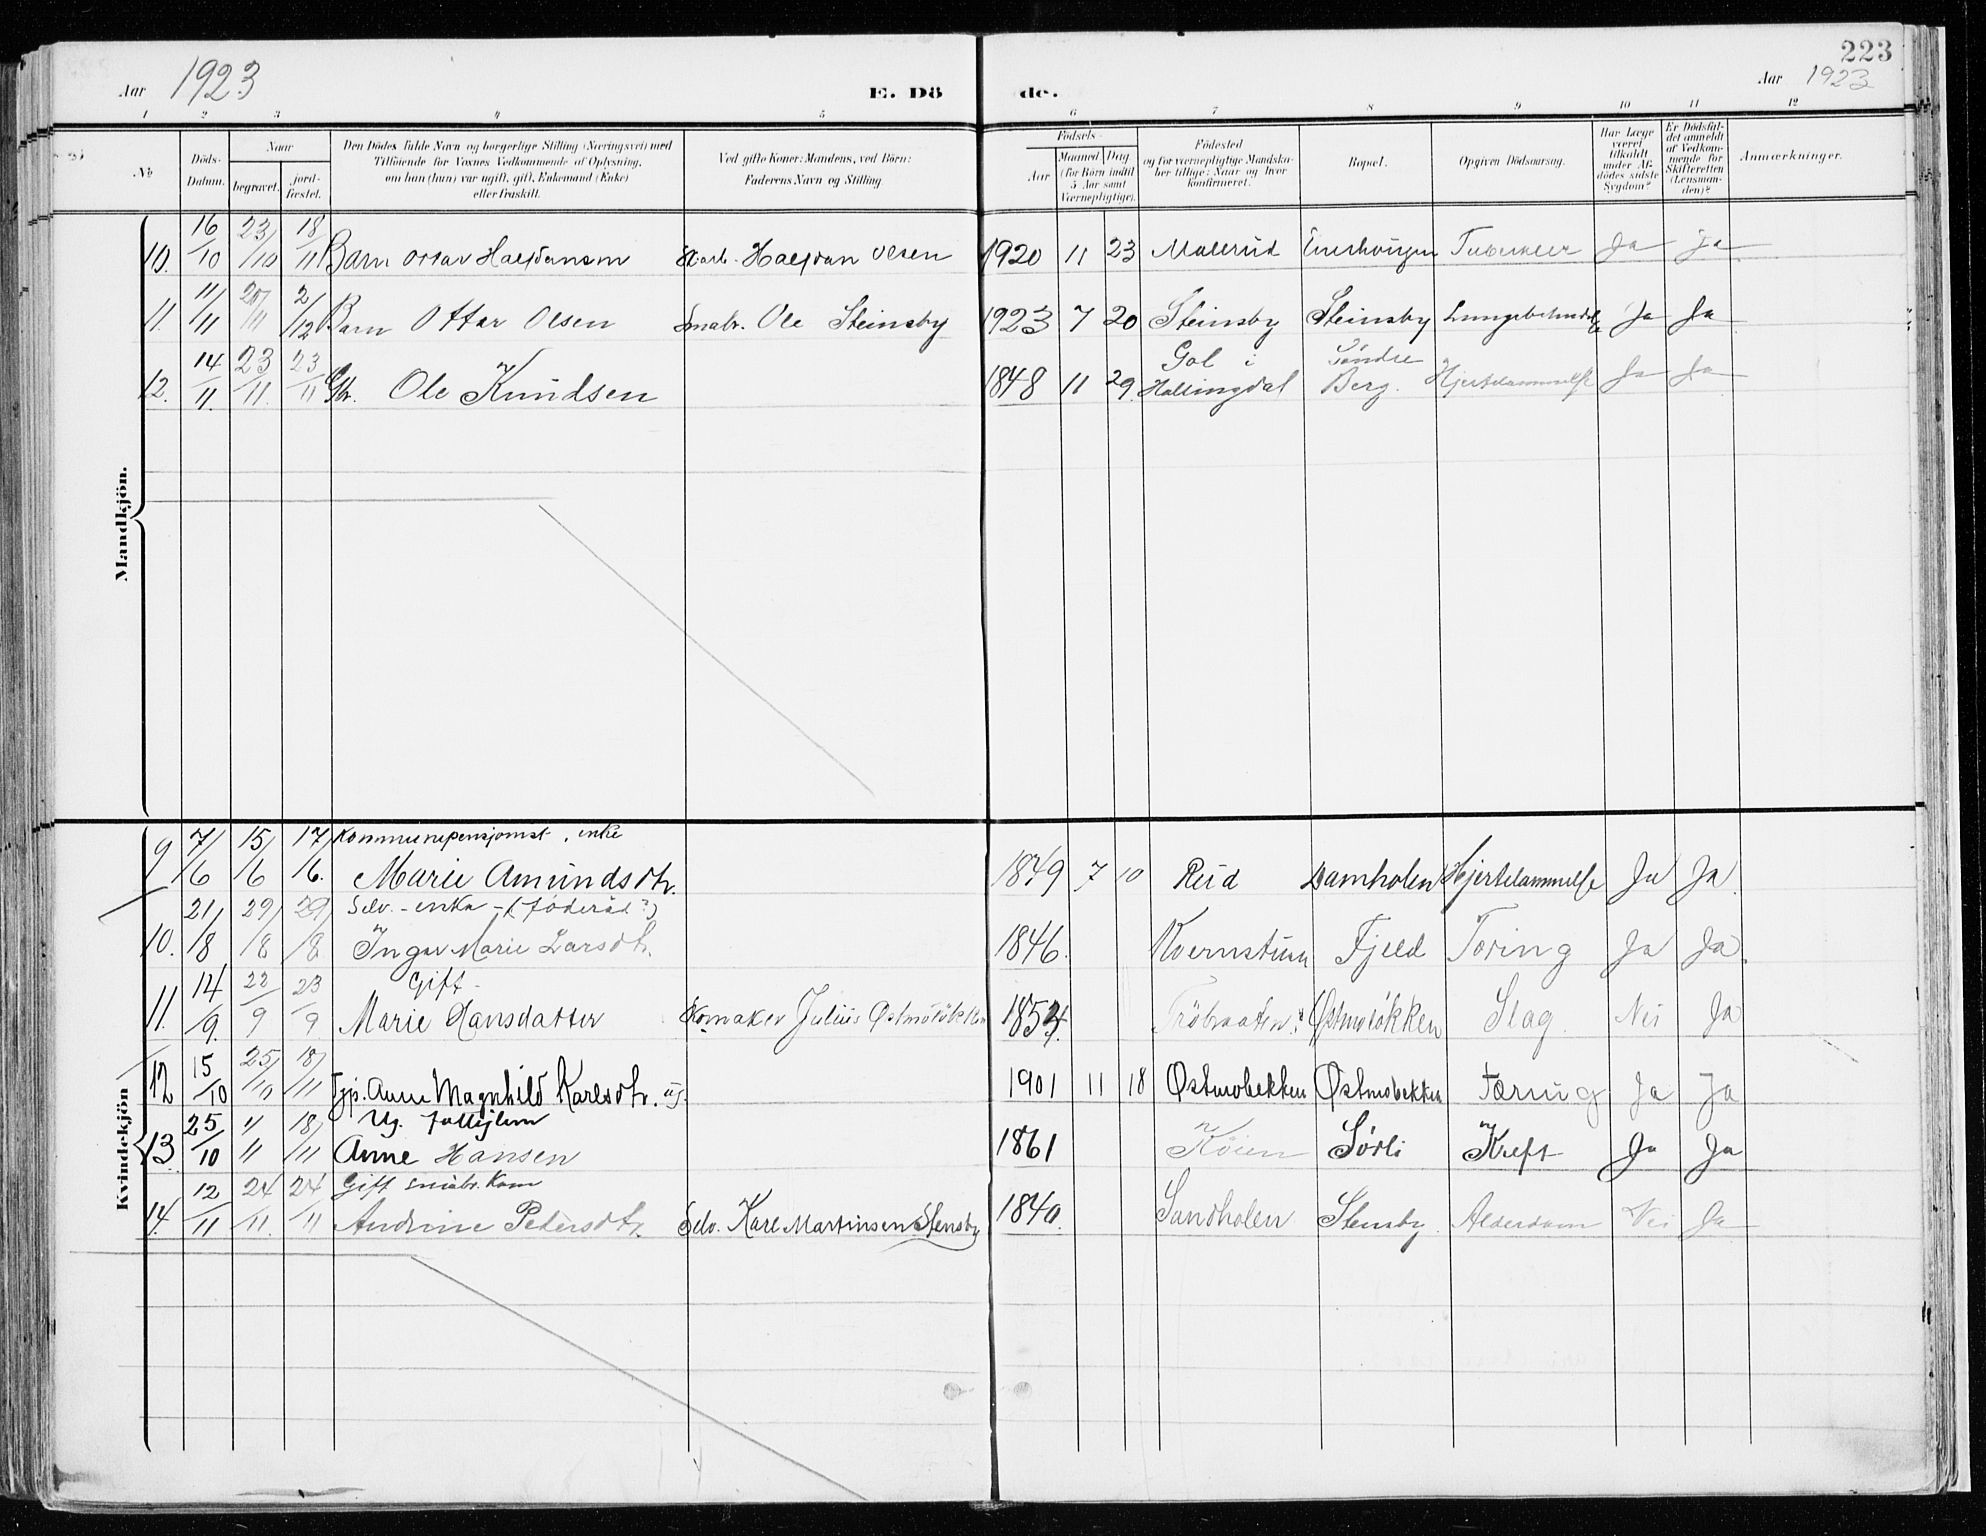 223
Aar 1923 E. Dö de. Aar 1923
1 2 3 4 5 6 7 8 9 10 11 12
№
Döds-Datum.
Naar
begravet.
jord-fæstet.
Den Dödes fulde Navn og borgerlige Stilling (Næringsvei) med
Tilföiende for Voxnes Vedkommende af Oplysning,
om han (hun) var ugift, gift, Enkemand (Enke)
eller fraskilt.
Ved gifte Koner: Mandens, ved Börn:
Faderens Navn og Stilling.
Födsels-
Aar
Maaned Dag
(for Börn indtil
5 Aar samt
Værnepligtige).
Födested
og for værnepligtige Mandska-
ber tillige: Naar og hvor
konfirmeret.
Bopæl.
Opgiven Dödsaarsag.
Har Læge
været
tilkaldt
under Af-
dödes sidste
Sygdom?
Er Dödsfal-
det anmeldt
af Vedkom-
mende for
Skifteretten
(Lensman-
den)?
Anmærkninger.
Mandkjön.
10. 16/10 23/10 18/11 Barn Halfdan Olsen 1920 11 23 Mallerud Ja Ja
11. 11/11 20/11 2/12 Barn Ottar Olsen Smabr. Ole Steinsby 1923 7 20 Steinsby Steinsby Ja Ja
12. 14/11 23/11 23/11 Gbr. Ole Knudsen 1848 11 29 Gol i Hallingdal Søndre Berg. Hjertelammelse Ja Ja
Kvindekjön
9 7/6 15/6 17/6. Kommunepensjonist, enke
Marie Amundsdtr. 1849 7 10 Reid Damholen Hjertelammelse Ja Ja
10. 21/8 29/8 29/8 Selv. - enke - (føderåd?)
Inger Marie Larsdtr. 1846. Kvernstuen Fjeld Tæring Ja Ja.
11. 14/9. 22/9 23/9 Gift -
Marie Hansdatter Julius Østmoløkken Østmoløkken Slag Nei Ja
12 15/10 25/10 18/11 Tjp. Anne Magnhild Karlsdtr. ug. 1901 11 18 Østmobekken Østmobekken Tæring Ja Ja
13 25/10 " 18/11 Ug. fattiglem
Anne Hansen 1861 Køien Sørli Kreft Ja Ja
14. 12/11 24/11. 24/11 Gift smabr. Kone
Andrine Petersdtr. Selv. Karl Martinsen Stensby 1840. Sandholen Stensby Alderdom Nei Ja